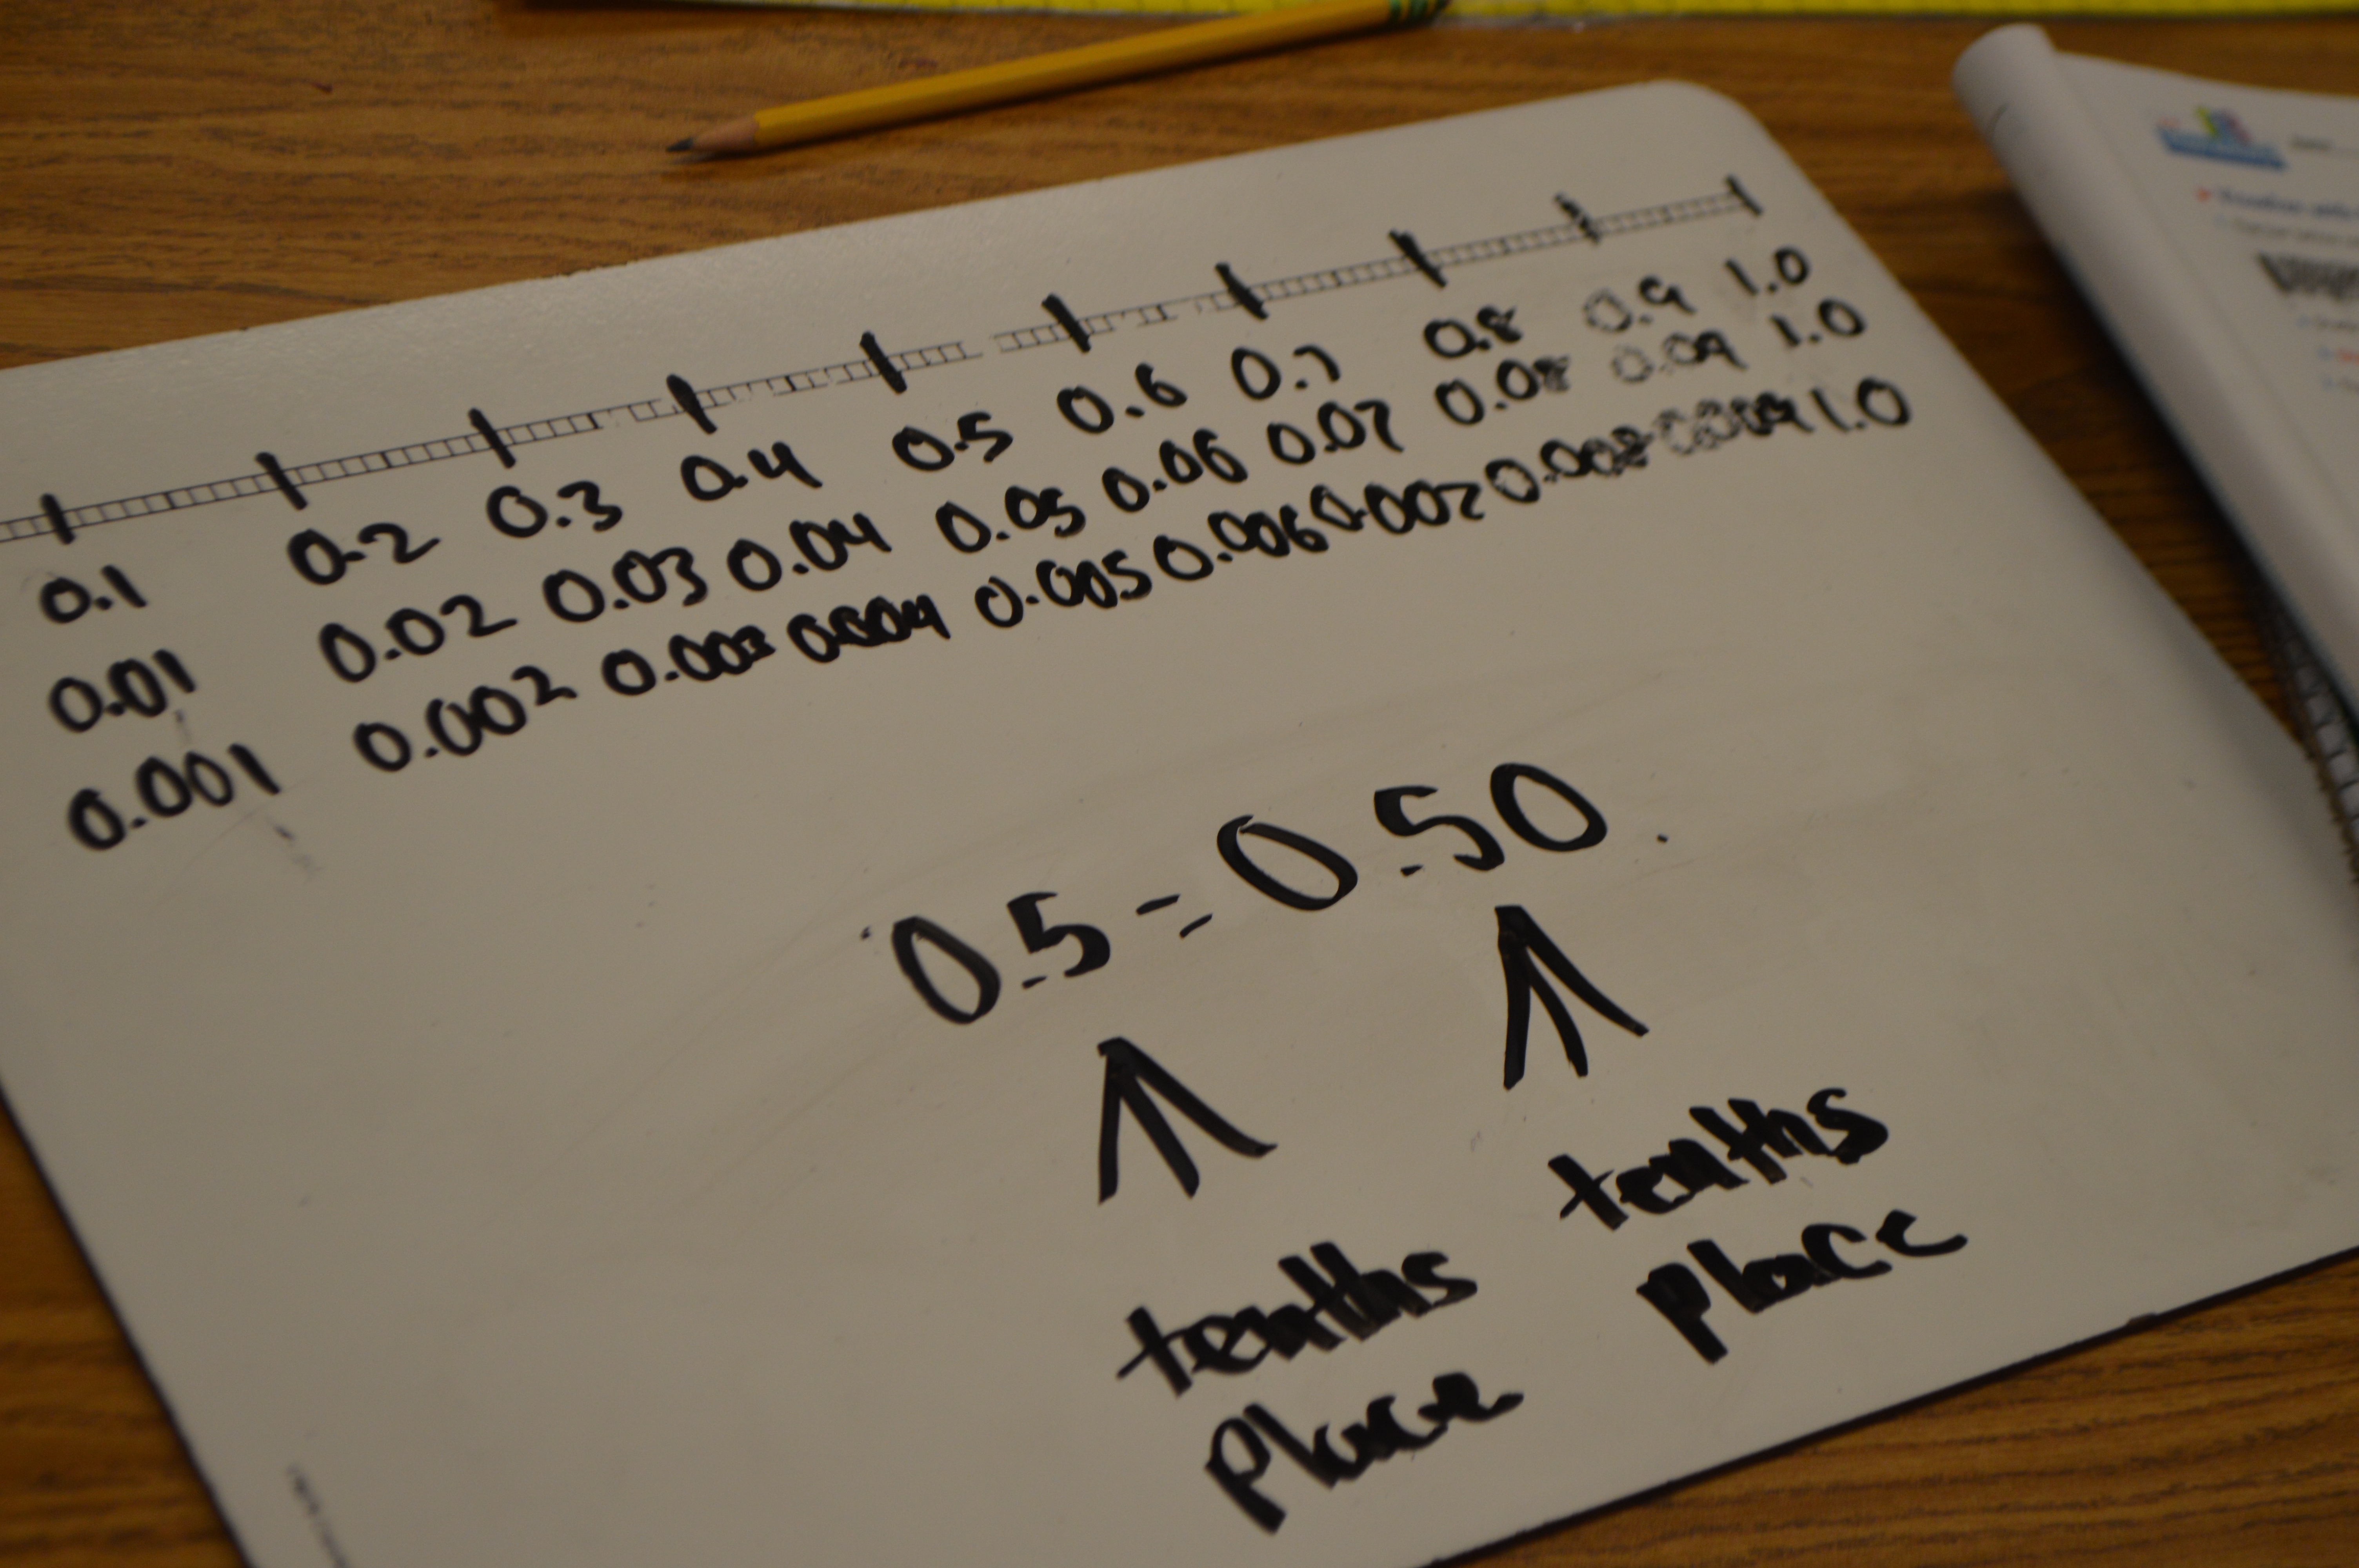 0.1 0.2 0.3 0.4 0.5 0.6 0.7 0.8 0.9 1.0
0.01 0.02 0.03 0.04 0.05 0.06 0.07 0.08 0.09 1.0
0.001 0.002 0.003 0.004 0.005 0.006 0.007 0.008 0.009 1.0
0.5 = 0.50
tenths
place
tenths
place